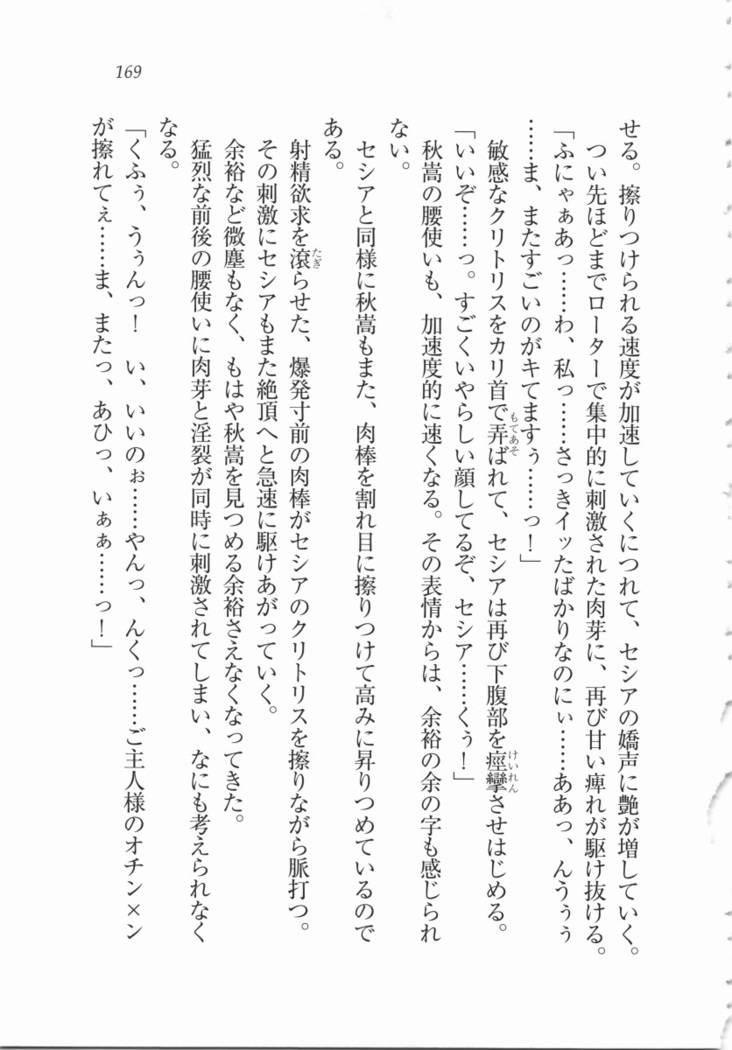 169
せる。擦りつけられる速度が加速していくにつれて、セシアの嬌声に艶が増していく。
つい先ほどまでローターで集中的に刺激された肉芽に、再び甘い痺れが駆け抜ける。
「ふにゃぁあっ……わ、私っ……さっきイッたばかりなのにぃ……ああっ、んうぅぅ
……ま、またすごいのがキてますぅ……っ！」
敏感なクリトリスをカリ首で弄ばれて、セシアは再び下腹部を痙攣させはじめる。
「いいぞ……っ。すごくいやらしい顔してるぞ、セシア……くぅ！」
秋嵩の腰使いも、加速度的に速くなる。その表情からは、余裕の余の字も感じられ
ない。
セシアと同様に秋嵩もまた、肉棒を割れ目に擦りつけて高みに昇りつめているので
ある。
射精欲求を滾らせた、爆発寸前の肉棒がセシアのクリトリスを擦りながら脈打つ。
その刺激にセシアもまた絶頂へと急速に駆けあがっていく。
余裕など微塵もなく、もはや秋嵩を見つめる余裕さえなくなってきた。
猛烈な前後の腰使いに肉芽と淫裂が同時に刺激されてしまい、なにも考えられなく
なる。
「くふぅ、うぅんっ！　い、いいのぉ……やんっ、んくっ……ご主人様のオチン×ン
が擦れてぇ……ま、またっ、あひっ、いぁぁ……っ！」